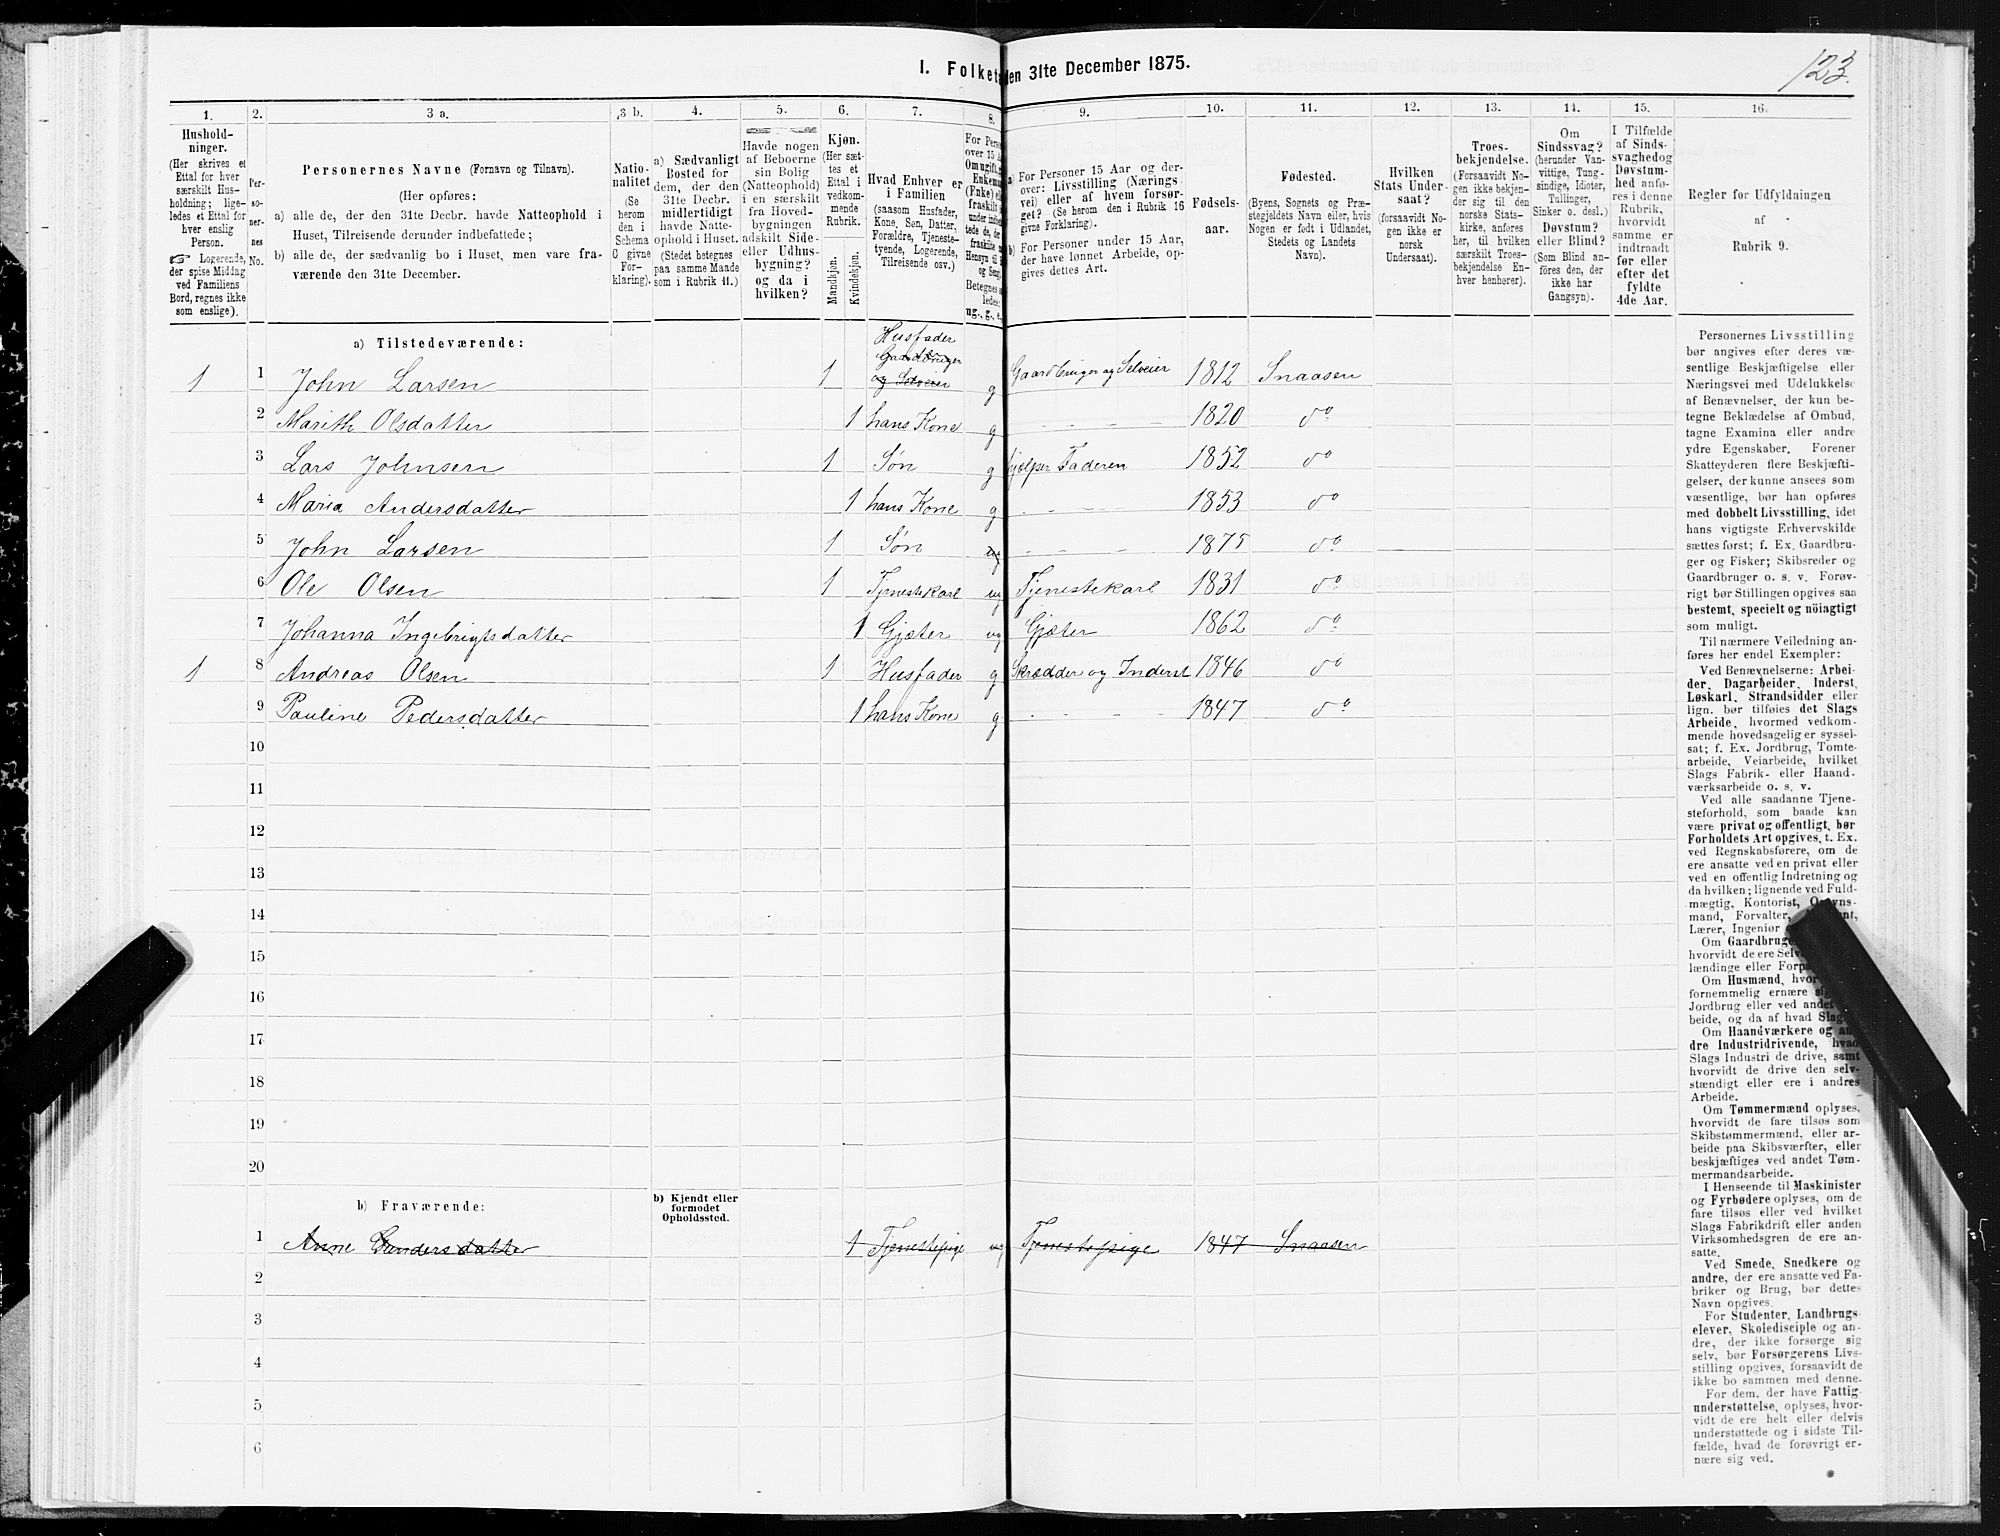 I. Folket
den 31te December 1875.
123.
1.
2.
3 a.
3 b.
4.
5.
6.
7.
8.
9.
10.
11.
12.
13.
14.
15.
16.
Hushold-
ninger.
(Her skrives et
Ettal for hver
særskilt Hus-
holdning; lige-
ledes et Ettal for
hver enslig
Person.
☞ Logerende,
der spise Middag
ved Familiens
Bord, regnes ikke
som enslige).
Per-
so-
ner-
nes
No.
Personernes Navne (Fornavn og Tilnavn).
(Her opføres:
a) alle de, der den 31te Decbr. havde Natteophold i
Huset, Tilreisende derunder indbefattede;
b) alle de, der sædvanlig bo i Huset, men vare fra-
værende den 31te December.
Natio-
nalitet
(Se
herom
den i
Schema
C givne
For-
klaring).
a) Sædvanligt
Bosted for
dem, der den
31te Decbr.
midlertidigt
havde Natte-
ophold i Huset.
(Stedet betegnes
paa samme Maade
som i Rubrik 11.)
Havde nogen
af Beboerne
sin Bolig
(Natteophold)
i en særskilt
fra Hoved-
bygningen
adskilt Side-
eller Udhus-
bygning?
og da i
hvilken?
Kjøn.
(Her sæt-
tes et
Ettal i
vedkom-
mende
Rubrik.
Mandkjøn.
Kvindekjøn.
Hvad Enhver er
i Familien
(saasom Husfader,
Kone, Søn, Datter,
Forældre, Tjeneste-
tyende, Logerende,
Tilreisende osv.)
For Pers
over 15 A
Omugift,
Enkem
(Enke) e
fraskilt
under indbe
tede de, de
fraskilte
Hensyn til
og Seng
Betegnes s
ledes:
ug., g., e.
a) For Personer 15 Aar og der-
over: Livsstilling (Nærings
vei) eller af hvem forsør-
get? (Se herom den i Rubrik 16
givne Forklaring).
b) For Personer under 15 Aar,
der have lønnet Arbeide, op-
gives dettes Art.
Fødsels-
aar.
Fødested.
(Byens, Sognets og Præ-
stegjeldets Navn eller, hvis
Nogen er født i Udlandet,
Stedets og Landets
Navn).
Hvilken
Stats Under-
saat?
(forsaavidt No-
gen ikke er
norsk
Undersaat).
Troes-
bekjendelse.
(Forsaavidt No-
gen ikke bekjen-
der sig til den
norske Stats-
kirke, anføres
her, til hvilken
særskilt Troes-
bekjendelse En-
hver henhører).
Om
Sindssvag?
(herunder Van-
vittige, Tung-
sindige, Idioter,
Tullinger,
Sinker o. desl.)
Døvstum?
eller Blind?
(Som Blind an-
føres den, der
ikke har
Gangsyn).
I Tilfælde
af Sinds-
svaghedog
Døvstum-
hed anfø-
res i denne
Rubrik,
hvorvidt
samme er
indtraadt
før eller
efter det
fyldte
4de Aar.
Regler for Udfyldningen
af
Rubrik 9.
a) Tilstedeværende:
1 1 John Larsen 1 Husfader Gaardbruger og Selveier g Gaardbruger og Selveier 1812 Snaasen
2 Marith Olsdatter 1 hans Kone g - - - - 1820 do
3 Lars Johnsen 1 Søn g hjelper Faderen 1852 do
4 Maria Andersdatter 1 hans Kone g - - - - 1853 do
5 John Larsen 1 Søn ug - - - - 1875 do
6 Ole Olsen 1 Tjenestekarl ug Tjenestekarl 1831 do
7 Johanna Ingebrigtsdatter 1 Gjæter ug Gjæter 1862 do
1 8 Andreas Olsen 1 Husfader g Skrædder og Inderst 1846 do
9 Pauline Pedersdatter 1 hans Kone g - - - - 1847 do
10
11
12
13
14
15
16
17
18
19
20
b) Fraværende:
b) Kjendt eller
formodet
Opholdssted.
1 Anne Gundersdatter 1 Tjenestepige ug Tjenestepige 1847 Snaasen
2
3
4
5
6
Personernes Livsstilling
bør angives efter deres væ-
sentlige Beskjæftigelse eller
Næringsvei med Udelukkelse
af Benævnelser, der kun be-
tegne Beklædelse af Ombud,
tagne Examina eller andre
ydre Egenskaber. Forener
Skatteyderen flere Beskjæfti-
gelser, der kunne ansees som
væsentlige, bør han opføres
med dobbelt Livsstilling, idet
hans vigtigste Erhvervskilde
sættes først; f. Ex. Gaardbru-
ger og Fisker; Skibsreder og
Gaardbruger o. s. v. Forøv-
rigt bør Stillingen opgives saa
bestemt, specielt og nöiagtigt
som muligt.
Til nærmere Veiledning an-
føres her endel Exempler:
Ved Benævnelserne: Arbei-
der, Dagarbeider, Inderst,
Løskarl, Strandsidder eller
lign. bør tilføies det Slags
Arbeide, hvormed vedkom-
mende hovedsagelig er syssel-
sat; f. Ex. Jordbrug, Tomte-
arbeide, Veiarbeide, hvilket
Slags Fabrik- eller Haand-
værksarbeide o. s. v.
Ved alle saadanne Tjene-
steforhold, som baade kan
være privat og offentligt, bør
Forholdets Art opgives, t. Ex.
ved Regnskabsførere, om de
ere ansatte ved en privat eller
ved en offentlig Indretning og
da hvilken; lignende ved Fuld-
mægtig, Kontorist, Opsyns-
mand, Forvalter,
Lærer, Ingeniør
Om Gaardbruge
hvorvidt de ere Selv
lændinge eller Forp
Om Husmænd, hvor
fornemmelig ernære si
Jordbrug eller ved andet
beide, og da af hvad Slags
Om Haandværkere og an-
dre Industridrivende, hvad
Slags Industri de drive, samt
hvorvidt de drive den selv-
stændigt eller ere i andres
Arbeide.
Om Tømmermænd oplyses,
hvorvidt de fare tilsøs som
Skibstømmermænd, eller ar-
beide paa Skibsværfter, eller
beskjæftiges ved andet Tøm-
mermandsarbeide.
I Henseende til Maskinister
og Fyrbødere oplyses, om de
fare tilsøs eller ved hvilket
Slags Fabrikdrift eller anden
Virksomhedsgren de ere an-
satte.
Ved Smede, Snedkere og
andre, der ere ansatte ved Fa-
briker og Brug, bør dettes
Navn opgives.
For Studenter, Landbrugs-
elever, Skoledisciple og an-
dre, der ikke forsørge sig
selv, bør Forsørgerens Livs-
stilling opgives, forsaavidt de
ikke bo sammen med denne.
For dem, der have Fattig-
understøttelse, oplyses, hvor-
vidt de ere helt eller delvis
understøttede og i sidste Til-
fælde, hvad de forøvrigt er-
nære sig ved.